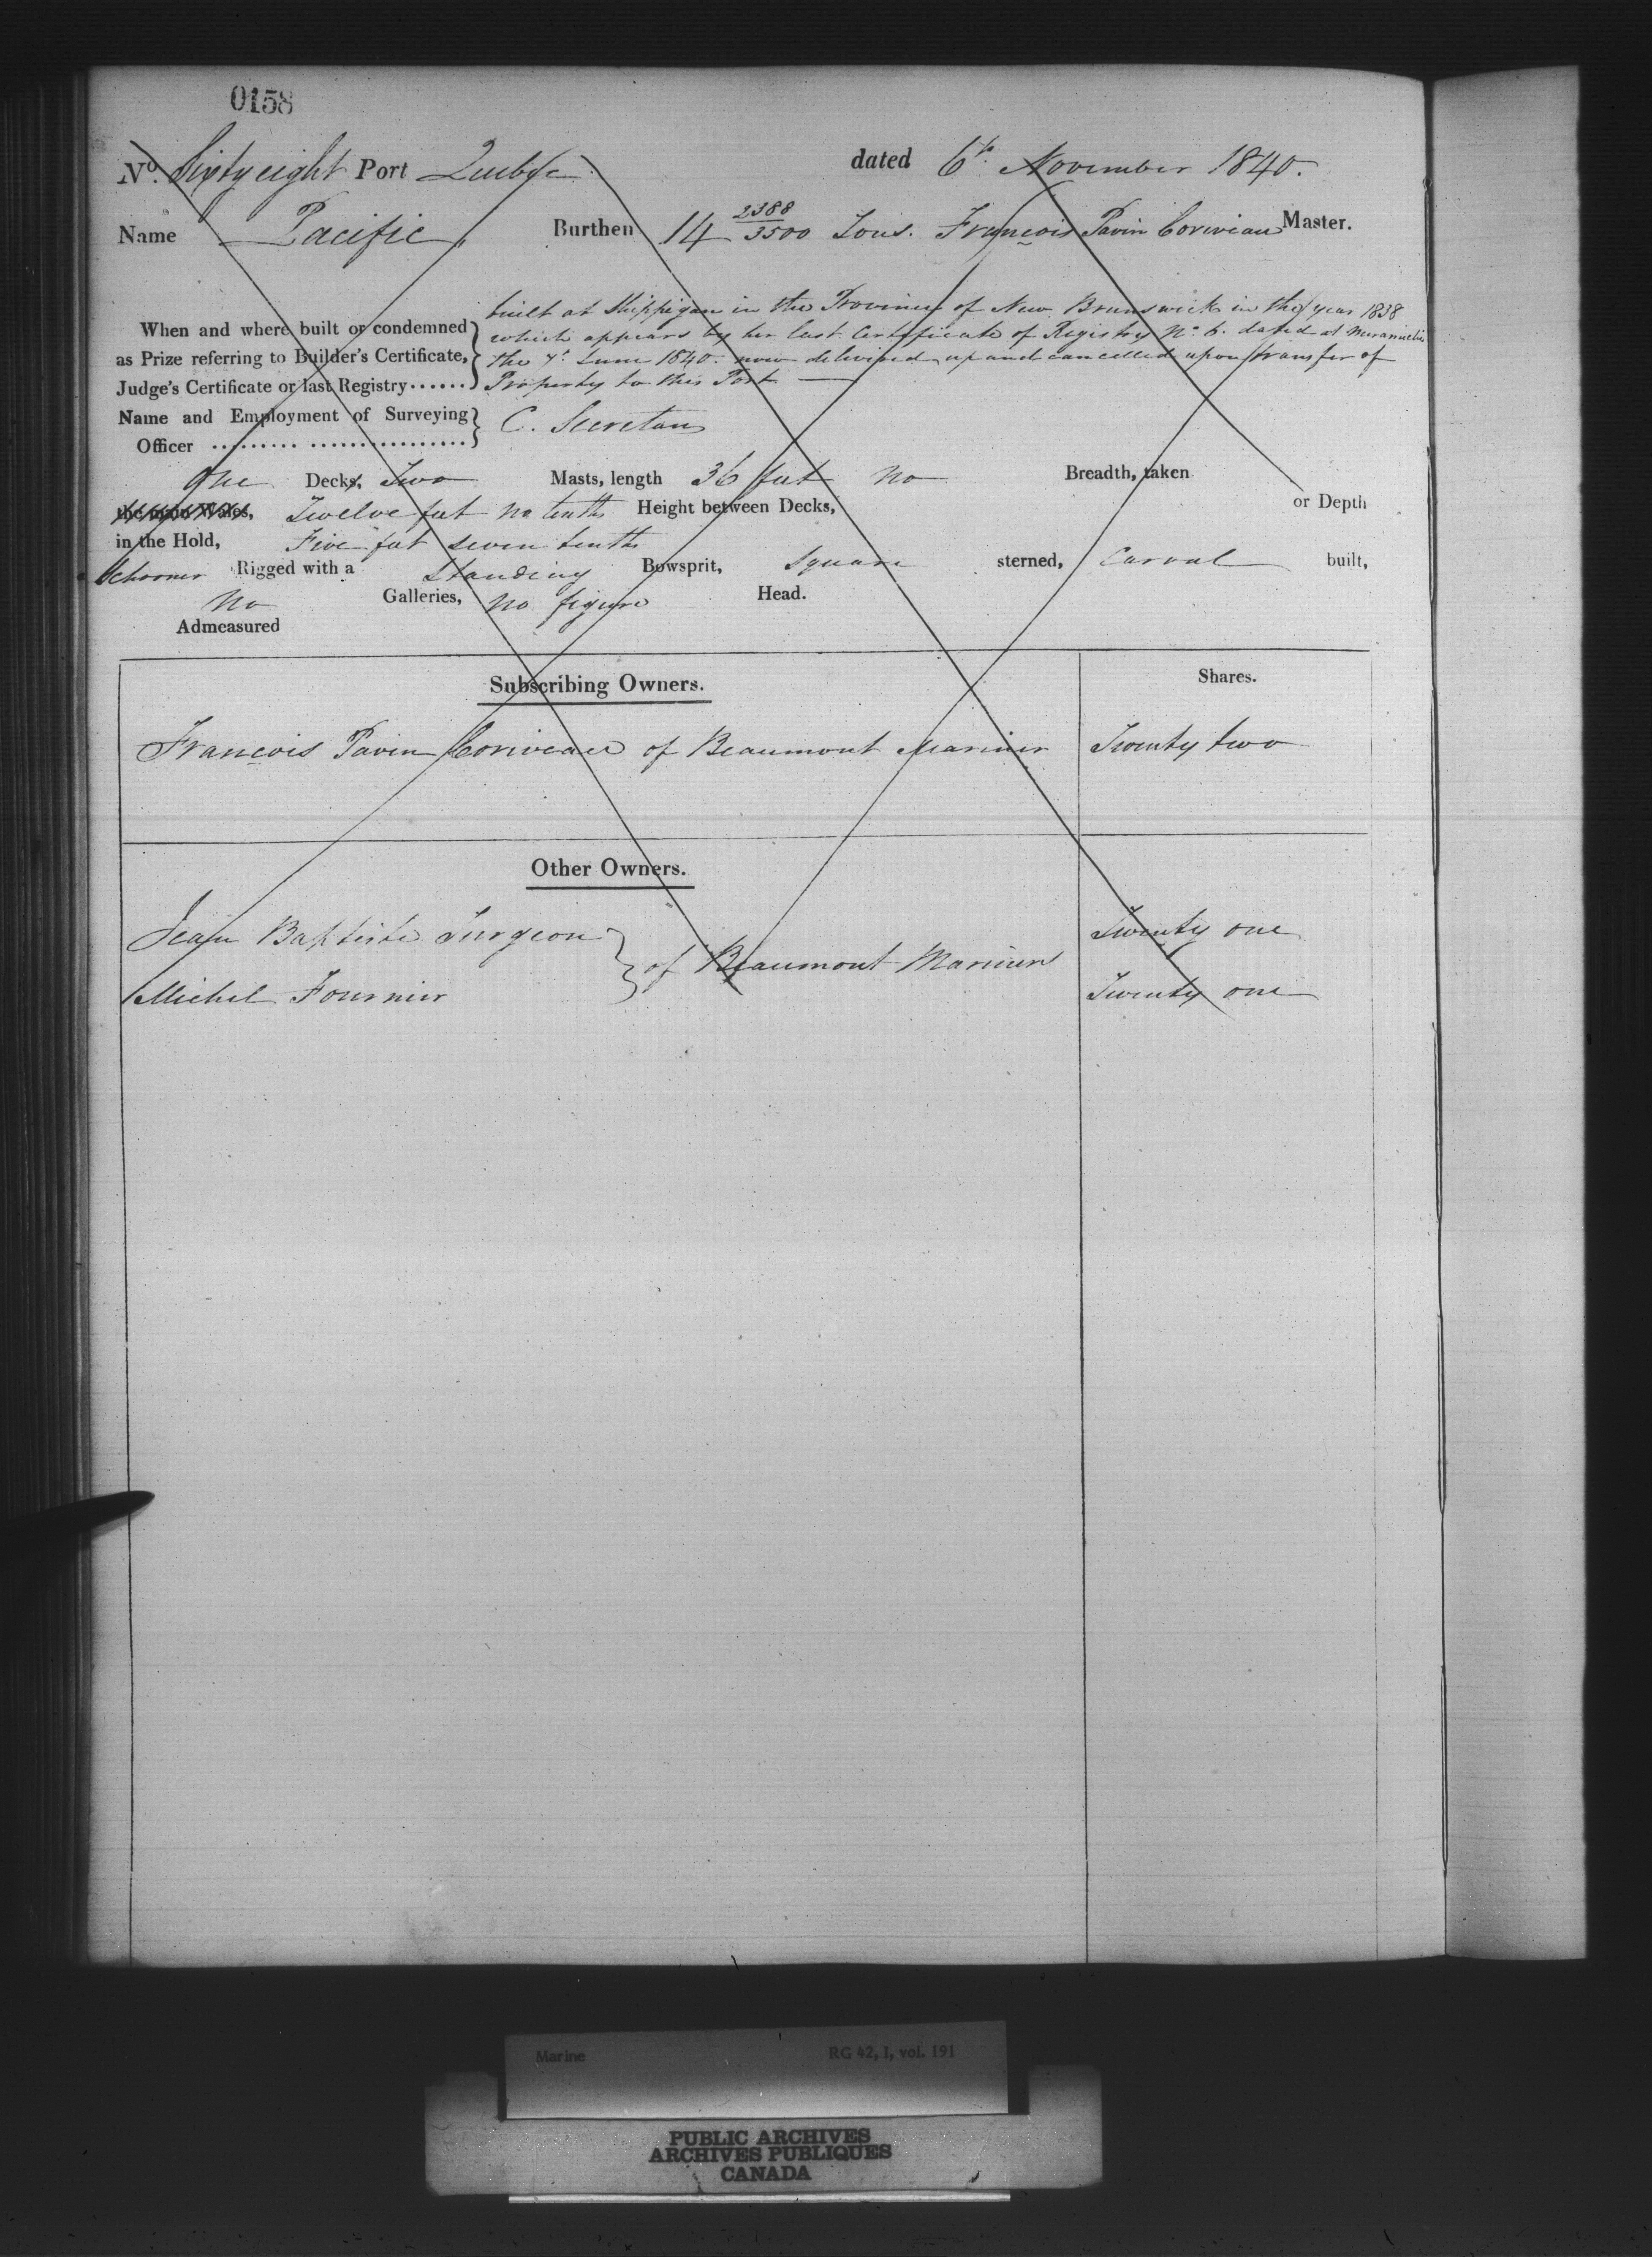 0158
No. Sixty eight Port Quebec dated 6th November 1840.
Name Pacific Burthen 14 2388/3500 Tons. François Pavin Coriveau Master.
When and where built or condemned as Prize referring to Builder's Certificate, Judge's Certificate or last Registry......
built at Shippigan in the Province of New Brunswick in the year 1838
which appears by her last Certificate of Registry No. 6. dated at Miramichi
the 7th June 1840. now delivered up and cancelled upon transfer of
Property to this Port
Name and Employment of Surveying Officer ......... ................ C. Secretan
One Decks, Two Masts, length 36 feet no Breadth, taken
the main Wales, Twelve feet no tenths Height between Decks, or Depth
in the Hold, Five feet seven tenths
Schooner Rigged with a Standing Bowsprit, Square sterned, Carval built,
No Galleries, no figure Head.
Admeasured
Subscribing Owners. Shares.
François Pavin Coriveau of Beaumont Mariner Twenty two
Other Owners.
Jean Baptiste Turgeon Twenty one
of Beaumont Mariners
Michel Fournier Twenty one
Marine RG 42, I, vol. 191
PUBLIC ARCHIVES
ARCHIVES PUBLIQUES
CANADA